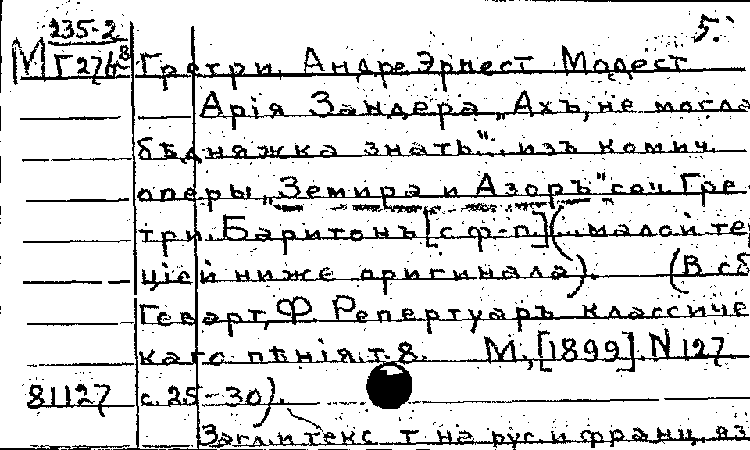 235-2 5.
М Г276в Гретри, Андре Эрнест Модест
Арія Зандера „Ахъ, не могла
бѣдняжка знать"... изъ комич.
оперы „Земира и Азоръ" соч. Гре-
три. Баритонъ [с ф-п] (...малой тер
ціей ниже оригинала). (В сб
Геварт, Ф. Репертуаръ классиче
каго пѣнія. т. 8. М., [1899]. N 127
81127 с. 25-30).
Загл. и текс т на рус. и франц. яз